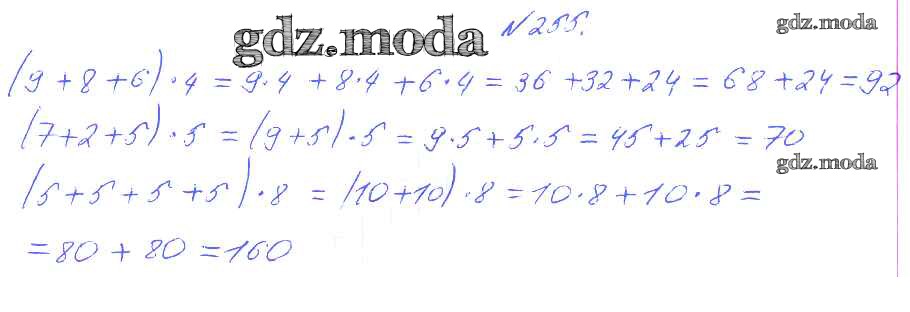 gdz.moda
№ 255.
gdz.moda
(9 + 8 + 6) · 4 = 9·4 + 8·4 + 6·4 = 36 + 32 + 24 = 68 + 24 = 92
(7 + 2 + 5) · 5 = (9 + 5) · 5 = 9·5 + 5·5 = 45 + 25 = 70
gdz.moda
(5 + 5 + 5 + 5) · 8 = (10 + 10) · 8 = 10·8 + 10·8 =
= 80 + 80 = 160